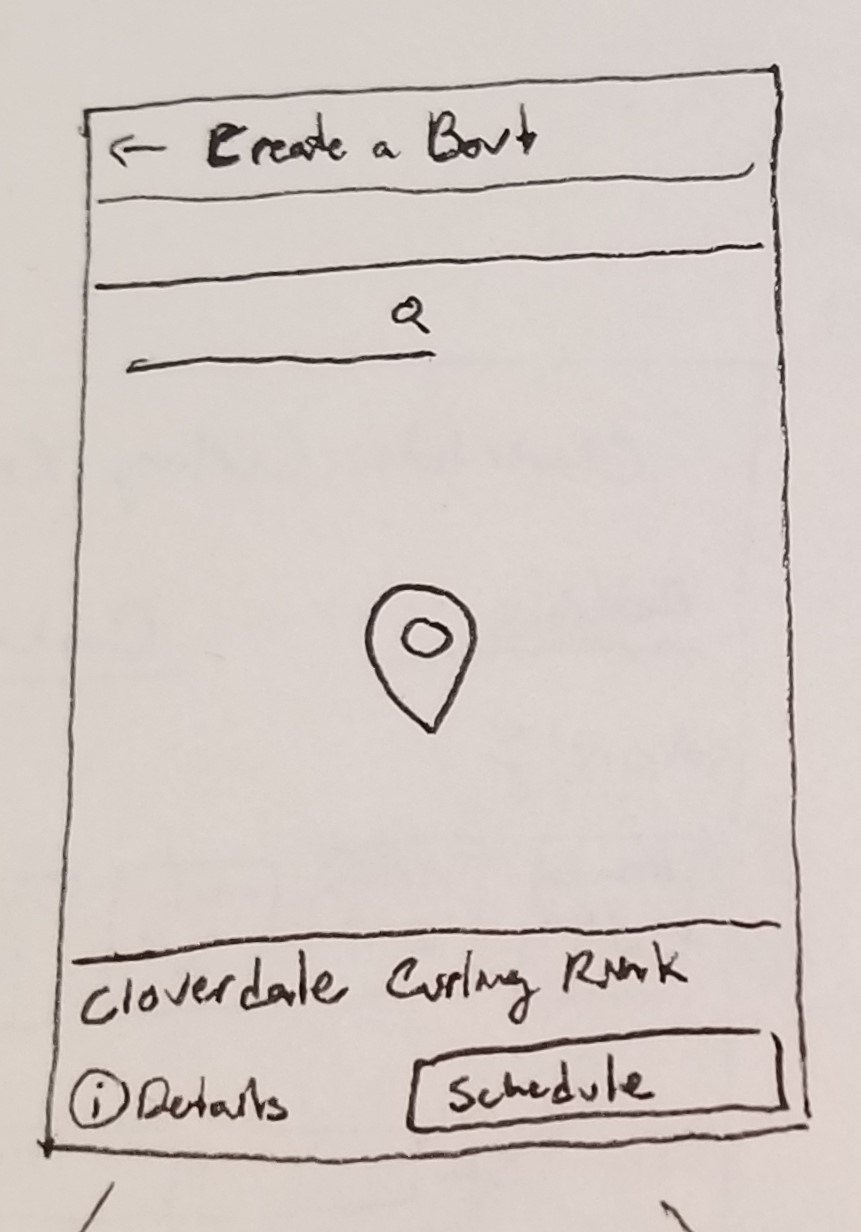 ← Create a Bout
Cloverdale Curling Rink
i Details
Schedule